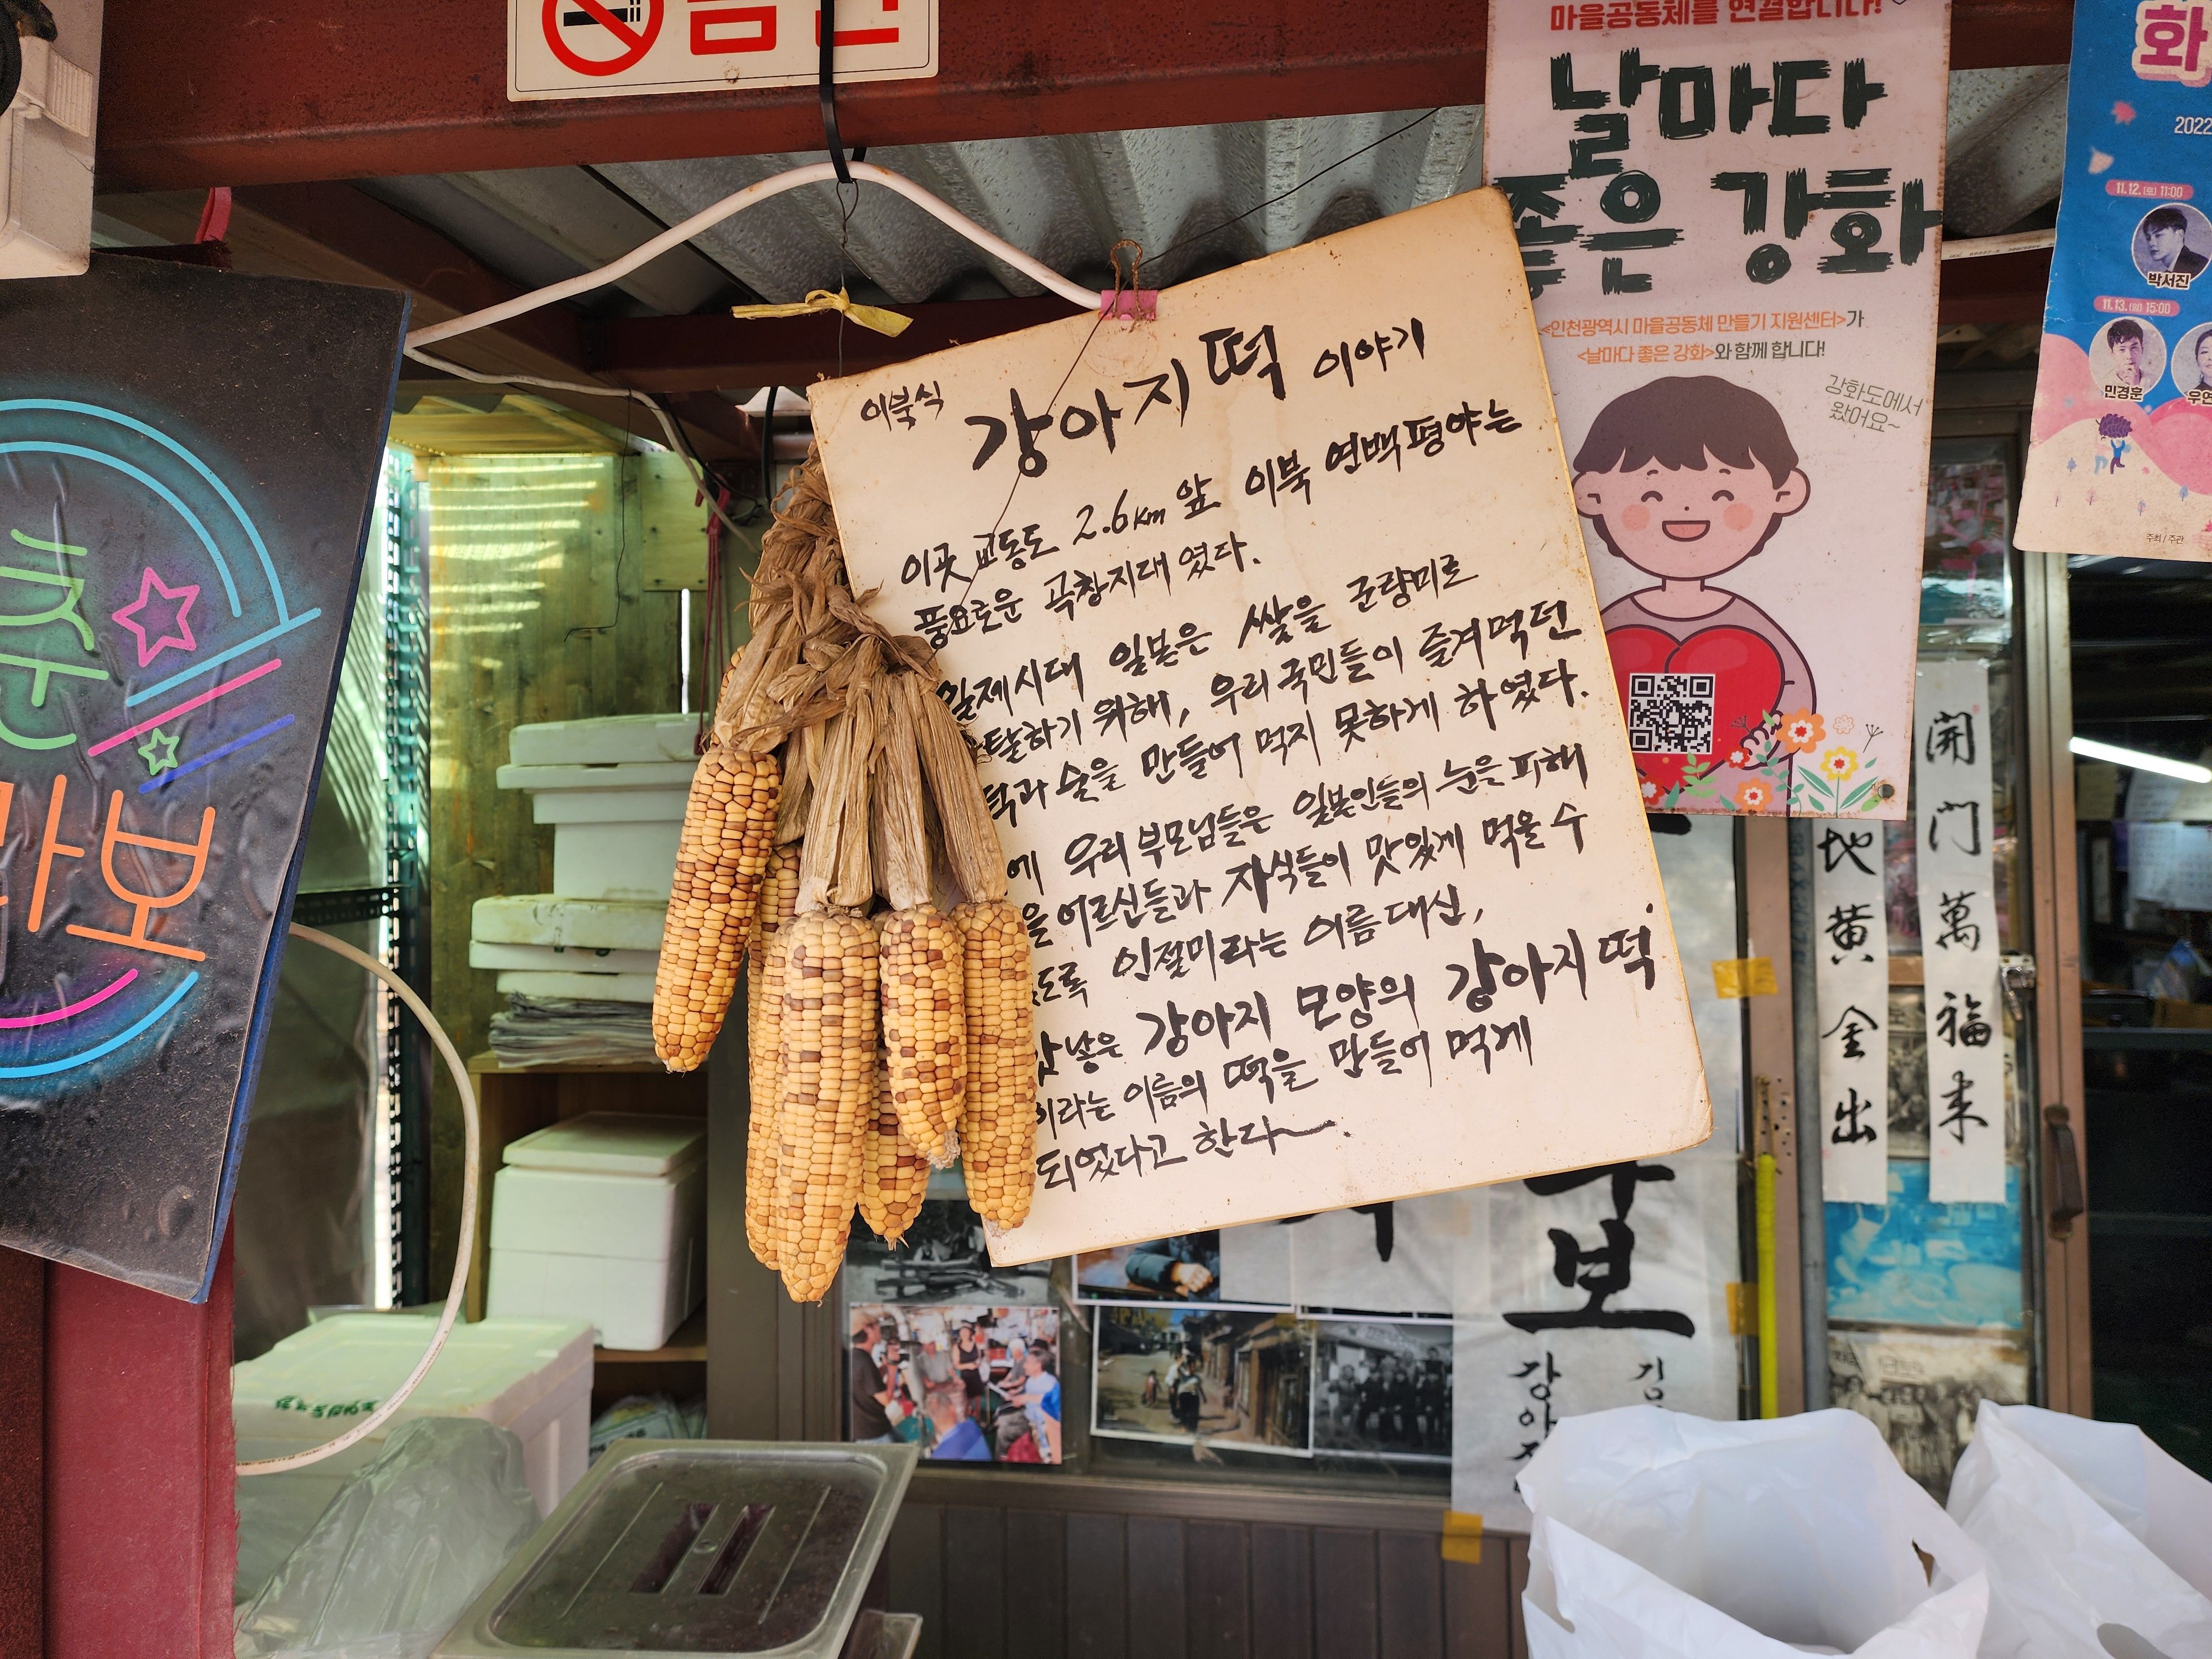 금연
마을공동체를 연결합니다!
날마다
좋은 강화
<인천광역시 마을공동체 만들기 지원센터>가
<날마다 좋은 강화>와 함께 합니다!
강화도에서
왔어요~
화
2022
11.12. [토] 11:00
박서진
11.13. [일] 15:00
민경훈
우연
주최 / 주관
이북식 강아지떡 이야기
이곳 교동도 2.6km 앞 이북 연백평야는
풍요로운 곡창지대였다.
일제시대 일본은 쌀을 군량미로
탈하기 위해, 우리 국민들이 즐겨먹던
떡과 술을 만들어 먹지 못하게 하였다.
에 우리 부모님들은 일본인들의 눈을 피해
을 어르신들과 자식들이 맛있게 먹을 수
도록 인절미라는 이름 대신,
갓 낳은 강아지 모양의 강아지떡
이라는 이름의 떡을 만들어 먹게
되었다고 한다~.
춘
라보
開門萬福来
地黄金出
보
강아지
김